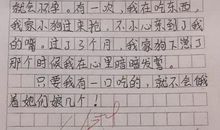 就怀孕。有一次，我在吃东西，
我家小狗过来抢，不小心亲到了我
的嘴。过了3个月，我家狗下崽了
那个时侯我在心里暗暗发誓。
只要我有一口吃的，就不会饿
着她们娘几个！